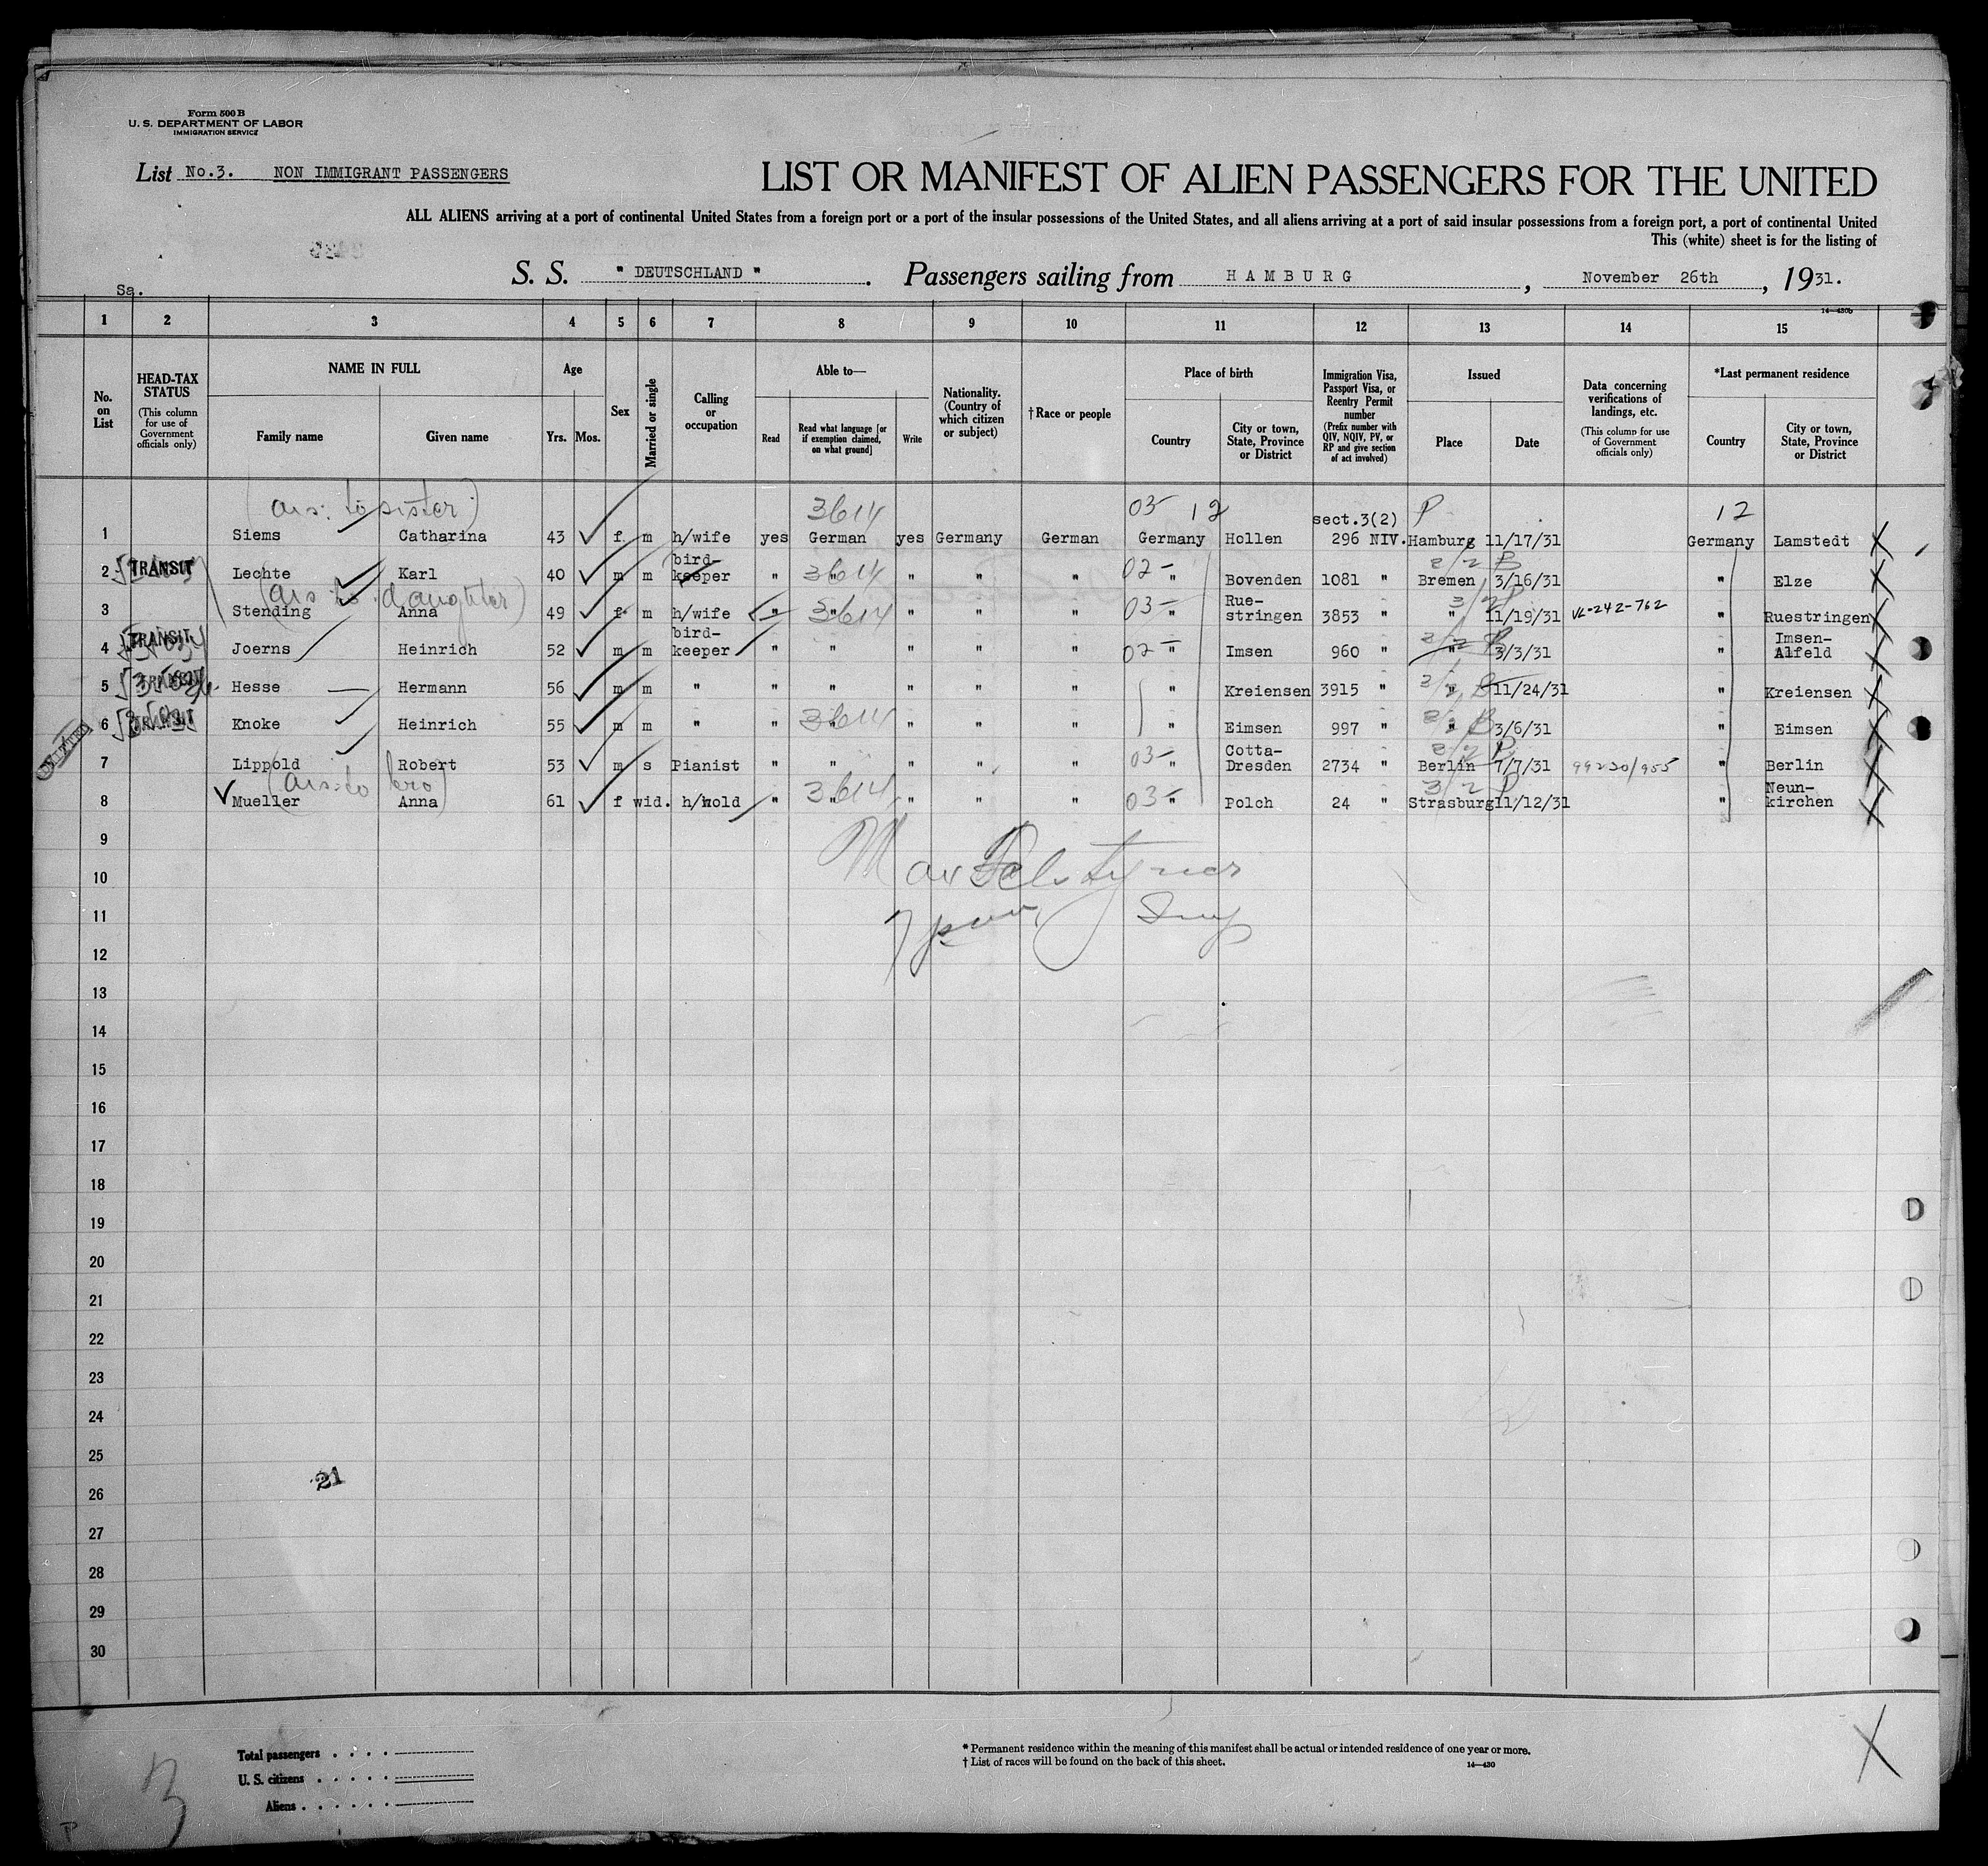 Form 500 B
U. S. DEPARTMENT OF LABOR
IMMIGRATION SERVICE
List No.3. NON IMMIGRANT PASSENGERS
LIST OR MANIFEST OF ALIEN PASSENGERS FOR THE UNITED
ALL ALIENS arriving at a port of continental United States from a foreign port or a port of the insular possessions of the United States, and all aliens arriving at a port of said insular possessions from a foreign port, a port of continental United
This (white) sheet is for the listing of
S. S. " DEUTSCHLAND ". Passengers sailing from HAMBURG, November 26th, 1931.
Sa.
14—430b
1 2 3 4 5 6 7 8 9 10 11 12 13 14 15
No. on List
HEAD-TAX STATUS (This column for use of Government officials only)
NAME IN FULL Family name Given name
Age Yrs. Mos.
Sex
Married or single
Calling or occupation
Able to— Read Read what language [or if exemption claimed, on what ground] Write
Nationality. (Country of which citizen or subject)
†Race or people
Place of birth Country City or town, State, Province or District
Immigration Visa, Passport Visa, or Reentry Permit number (Prefix number with QIV, NQIV, PV, or RP and give section of act involved)
Issued Place Date
Data concerning verifications of landings, etc. (This column for use of Government officials only)
*Last permanent residence Country City or town, State, Province or District
(ars: to sister) 3614 03- 12 sect.3(2) P 12
1 Siems Catharina 43 f m h/wife yes German yes Germany German Germany Hollen 296 NIV. Hamburg 11/17/31 Germany Lamstedt
2 TRANSIT Lechte Karl 40 m m bird-keeper " 3614 " " " " 02- " Bovenden 1081 " Bremen 3/16/31 " Elze
(ars to daughter)
3 Stending Anna 49 f m h/wife " 3614 " " " " 03- " Rue-stringen 3853 " " 11/19/31 VL-242-762 " Ruestringen
4 TRANSIT Joerns Heinrich 52 m m bird-keeper " " " " " 02- " Imsen 960 " " 3/3/31 " Imsen-Alfeld
5 TRANSIT Hesse Hermann 56 m m " " " " " " " Kreiensen 3915 " " 11/24/31 " Kreiensen
6 TRANSIT Knoke Heinrich 55 m m " " 3614 " " " " " Eimsen 997 " " 3/6/31 " Eimsen
7 Lippold Robert 53 m s Pianist " " " " " 03- " Cotta-Dresden 2734 " Berlin 7/7/31 99230/955 " Berlin
(ars: to bro)
8 Mueller Anna 61 f wid. h/hold " 3614 " " " " 03- " Polch 24 " Strasburg 11/12/31 " Neun-kirchen
9
10
11
12
13
14
15
16
17
18
19
20
21
22
23
24
25
26
27
28
29
30
21
Total passengers
U. S. citizens
Aliens
* Permanent residence within the meaning of this manifest shall be actual or intended residence of one year or more.
† List of races will be found on the back of this sheet.
14—430
3